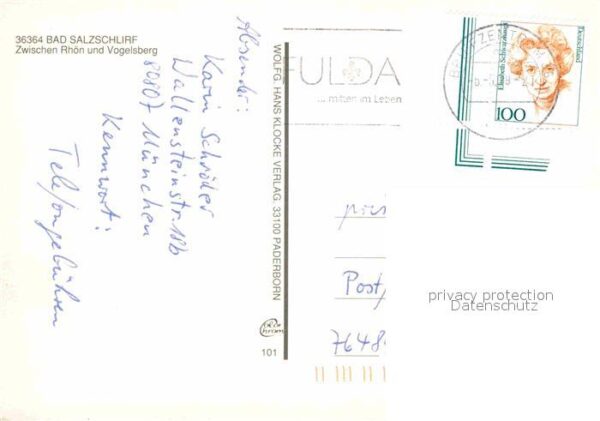 36364 BAD SALZSCHLIRF
Zwischen Rhön und Vogelsberg
Absender:
Karin Schröder
Wallensteinstr. 18b
80807 München
Kennwort:
Telefongebühren
WOLFG. HANS KLOCKE VERLAG. 33100 PADERBORN
101
FULDA
... mitten im Leben
BRIEFZENTRUM
Deutschland
100
Post,
7648
privacy protection
Datenschutz